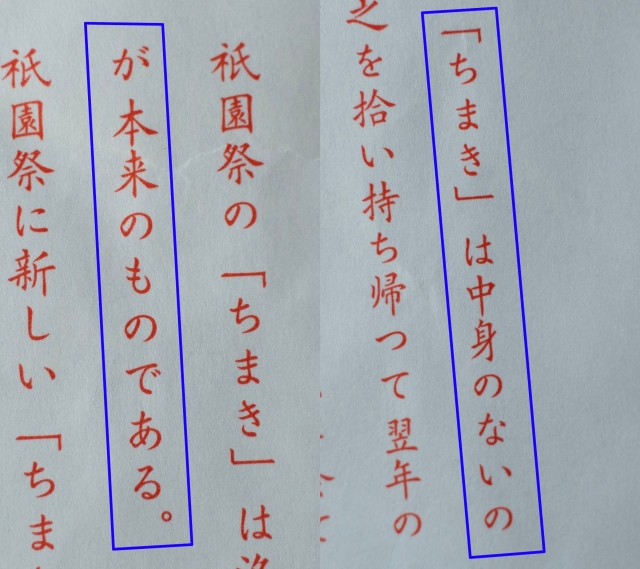 「ちまき」は中身のないの
之を拾い持ち帰つて翌年の
祇園祭の「ちまき」は
が本来のものである。
祇園祭に新しい「ちま